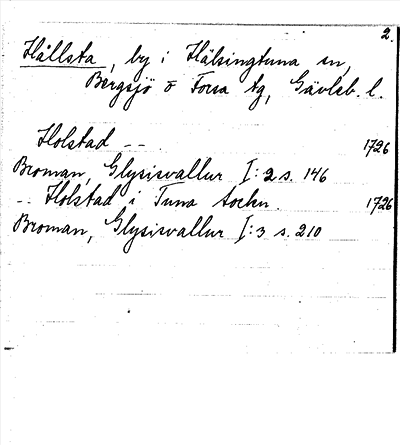 2.
Hållsta, by i Hälsingtuna sn,
Bergsjö o Forsa tg, Gävleb. l.
Holstad -- 1726
Broman, Glysisvallur I:2 s. 146
-- Holstad i Tuna sockn. 1726
Broman, Glysisvallur I:3 s. 210